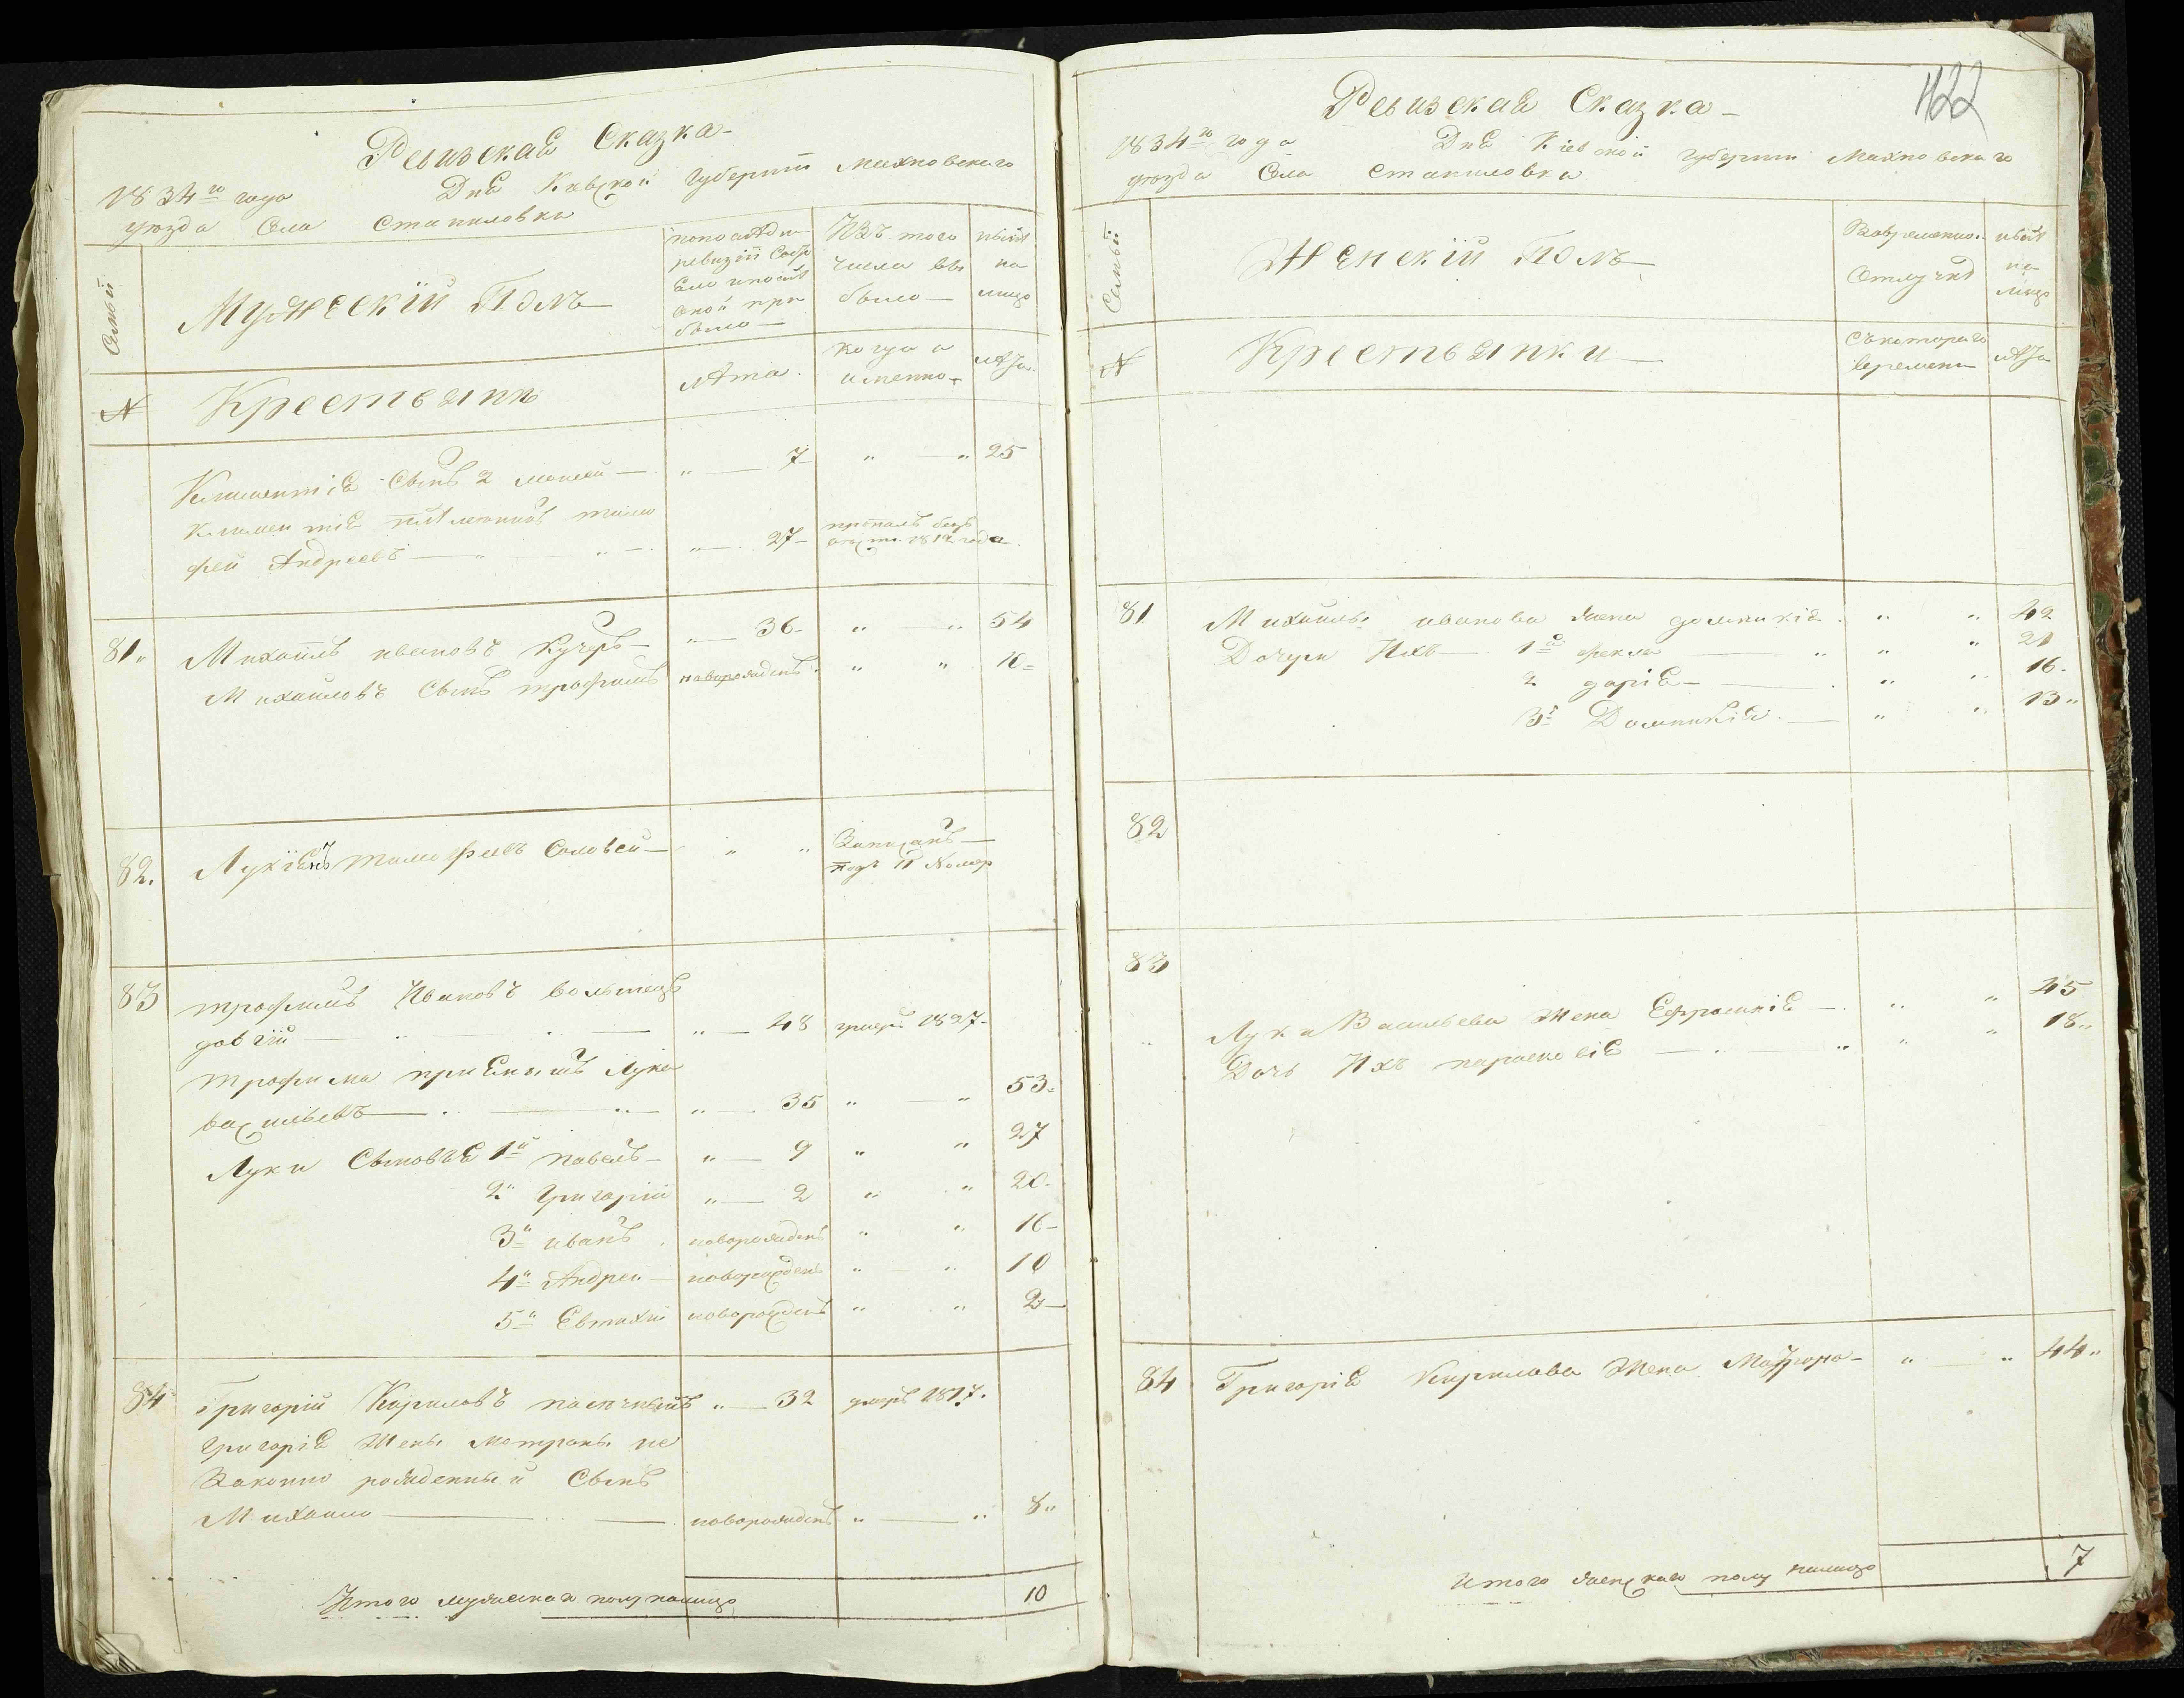 Ревизская Сказка
1834го года Дня Киевской Губернии Махновского
уезда Села Стапиловка
Семьи
Мужеский Полъ
по последней
ревизии состо
было
Изъ того
числа вы
было
ныне
на
лицо
№
Крестьянъ
лета
когда
именно
лета
Климентія Сынъ 2 7 " " 25
Климентія племянникъ тимо
фей Андреевъ " " 27 пропалъ безъ
вести 1812 года
81 Михаилъ ивановъ Кучеръ " 36 " " 54
Михаиловъ Сынъ трофимъ новорожденъ " " 10
82. Лукіянъ тимофеевъ Соловей " " Записанъ
подъ 11 Номер
83 трофимъ Ивановъ
" 48 умеръ 1827
трофима Лука
васильевъ " 35 " " 53
Луки Сыновья 1й павелъ " 9 " " 27
2й Григорій " 2 " " 20
3й иванъ новорожденъ " " 16
4й Андреи новорожденъ " " 10
5й Евтихій новорожденъ " " 2
84 Григорій Кириловъ " 32 умеръ 1817
Григорія Жены мотроны не
Законно рожденный Сынъ
Михаило новорожденъ " " 8
Итого мужеска полу налицо 10
1122
Ревизская Сказка
1834го года Дня Кіевской губерніи Махновского
уезда Села Стапиловка
Семьи
Женскій Полъ
Вовременно
Отлучке
ныне
на
лицо
№
Крестьянки
Съкотораго
времени
лета
81 Михаила иванова жена домникія " " 42
Дочери Ихъ 1я фекла " " 21
2 дарія " " 16
3я Домникія " " 13
82
83
Лука Васильева Жена Ефросинія " " 45
Дочь Ихъ парасковія " " 18
84 Григорія Кирилова Жена " " 44
Итого женскаго полу налицо 7